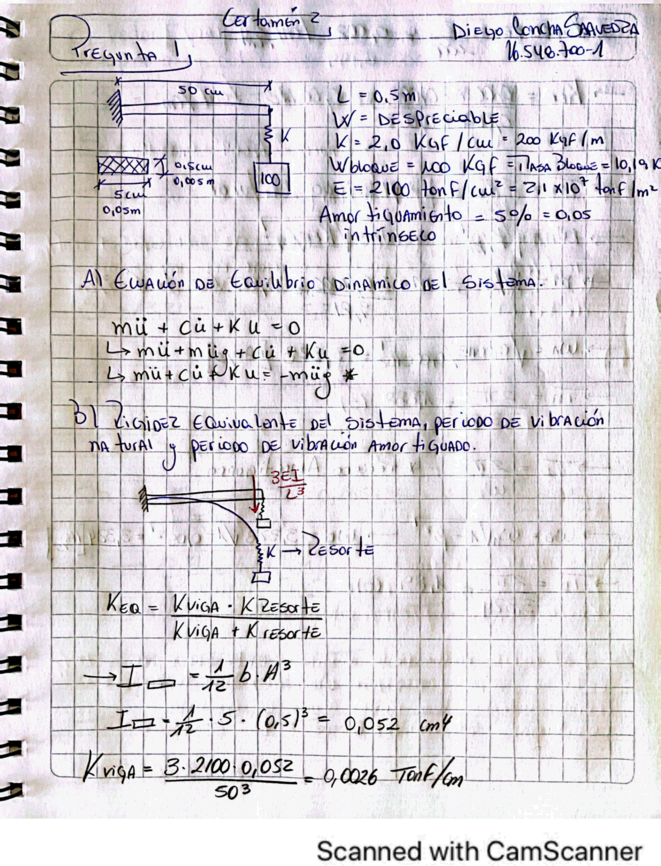 Certamén 2
Diego Concha SAAVEDRA
16.548.700-1
PREGUNTA 1
50 cm
K
100
0,5cm
0,005m
5cm
0,05m
L = 0,5m
W = DESPRECIABLE
K = 2,0 KGF/cm = 200 KGF/m
Wbloque = 100 KGF = MASA Bloque = 10,19 K
E = 2100 tonf/cm² = 2,1 x10⁷ tonf/m²
Amortiguamiento = 5% = 0,05
intrínseco
A) Ecuación de Equilibrio Dinamico del Sistema.
mü + Cu̇ + Ku = 0
↳ mü + müg + cu̇ + Ku = 0
↳ mü + cu̇ + Ku = -müg *
B) RIGIDEZ EQUIVALENTE DEL SISTEMA, PERIODO DE VIBRACIÓN
NATURAL y PERIODO DE VIBRACIÓN AMORTIGUADO.
3EI
L³
K → RESORTE
KEQ = KVIGA · K RESORTE
KVIGA + K RESORTE
→ I▭ = 1/12 b·H³
I▭ = 1/12 · 5 · (0,5)³ = 0,052 cm4
KVIGA = 3·2100·0,052 = 0,0026 Tonf/cm
50³
Scanned with CamScanner